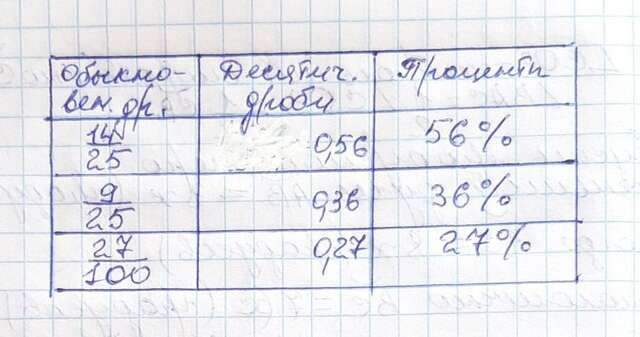 Обыкно- Десятич. Проценты
вен. др. дроби
14/25 0,56 56%
9/25 0,36 36%
27/100 0,27 27%